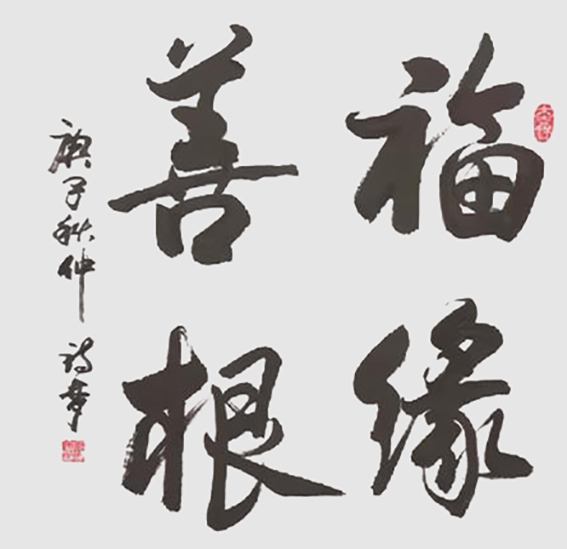 福缘
善根
庚子秋仲 诗梦